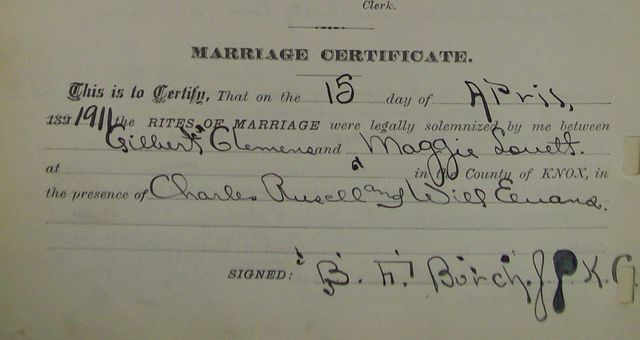 Clerk.
MARRIAGE CERTIFICATE.
This is to Certify, That on the 15 day of April,
189 1911 the RITES OF MARRIAGE were legally solemnized by me between
Gilbert Clemens and Maggie Lovett.
at in the County of KNOX, in
the presence of Charles Russell and Will Evans.
SIGNED: B. F. Burch, J P K. C.